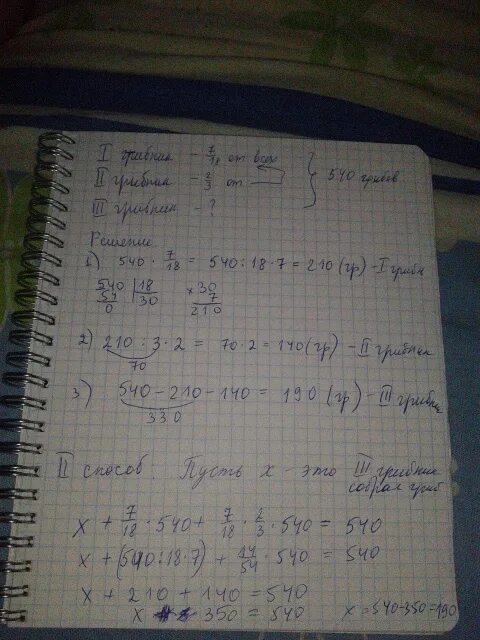 I грибник – 7/18 от всех
II грибник – 2/3 от
III грибник – ?
} 540 грибов
Решение
1) 540 · 7/18 = 540 : 18 · 7 = 210 (гр) – I грибн
540 | 18
54 30
0
× 30
7
210
2) 210 : 3 · 2 = 70 · 2 = 140 (гр) – II грибник
70
3) 540 – 210 – 140 = 190 (гр) – III грибник
330
II способ Пусть x – это III грибник
собрал гриб
x + 7/18 · 540 + 7/18 · 2/3 · 540 = 540
x + (540 : 18 · 7) + 14/54 · 540 = 540
x + 210 + 140 = 540
x 350 = 540 x = 540 – 350 = 190